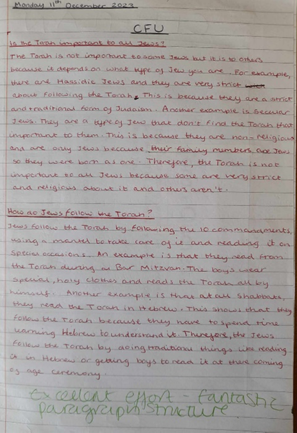 Monday 11th December 2023
CFU
Is the Torah important to all Jews?
The Torah is not important to some Jews but it is to others
because it depends on what type of Jew you are. For example,
there are Hassidic Jews and they are very strict
about following the Torah. This is because they are a strict
and traditional form of Judaism. Another example is secular
Jews. They are a type of Jew that don't find the Torah that
important to them. This is because they are non-religious
and are only Jews because their family members are Jew
so they were born as one. Therefore, the Torah is not
important to all Jews because some are very strict
and religious about it and others aren't.
How do Jews follow the Torah?
Jews follow the Torah by following the 10 commandments,
using a mantel to take care of it and reading it on
special occasions. An example is that they read from
the Torah during a Bar Mitzvah. The boys wear
special, holy clothes and reads the Torah all by
himself. Another example is that at all Shabbats,
they read the Torah in Hebrew. This shows that they
follow the Torah because they have to spend time
learning Hebrew to understand it. Therefore, the Jews
follow the Torah by doing traditional things like reading
it in Hebrew or getting boys to read it at there coming
of age ceremony.
Excellent effort - fantastic
paragraph structure